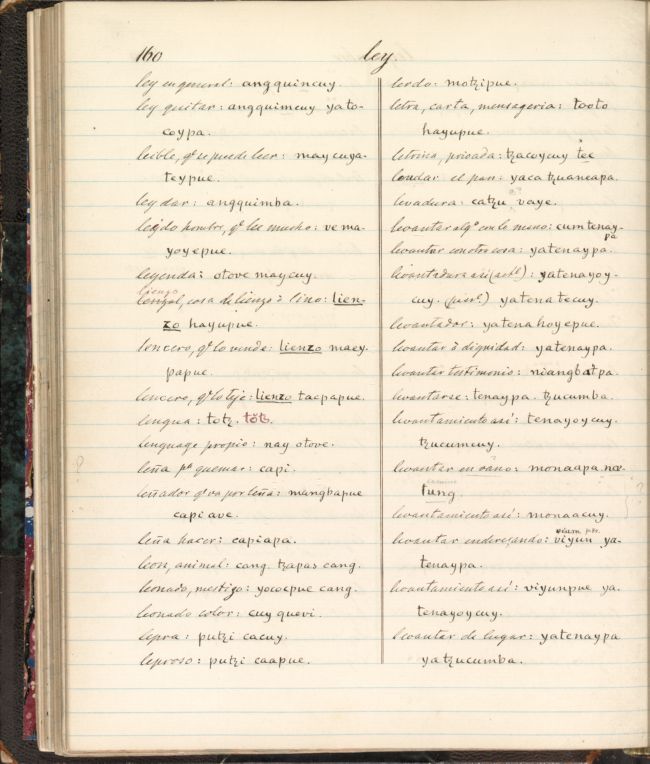 160
ley.
ley en general: angquincuy.
ley quitar: angquimcuy yato-
coypa.
leible, q.e se puede leer: maycuya-
teypue.
ley dar: angquimba.
leido hombre, q.e lee mucho: vema-
yoyepue.
leyenda: otove maycuy.
lienzo
lenzol, cosa de lienzo ò lino: lien-
zo hayupue.
lencero, q.e lo vende: lienzo maey-
papue.
lencero, q.e lo teje: lienzo tacpapue.
lengua: totz. tötz.
lenguage propio: nay otove.
leña p.a quemar: capi.
leñador q.e va por leña: mungbapue
capi ave.
leña hacer: capiapa.
leon, animal: cang. tzapas cang.
leonado, mestizo: yococpue cang.
leonado color: cuy quevi.
lepra: putzi cacuy.
leproso: putzi caapue.
lerdo: motzipue.
letra, carta, mensageria: tooto
hayupue.
letrina, privada: tzacoycuy tee
leudar el pan: yaca tzuaneapa.
levadura: catzu vaye.
levantar alg.o con la mano: cumtenay-
pa
levantar con otra cosa: yatenaypa.
levantadura asi (act.l): yatenayoy-
cuy. (pas.l) yatenatecuy.
levantador: yatenahoyepue.
levantar à dignidad: yatenaypa.
levantar testimonio: niangbatpa.
levantarse: tenaypa. tzucumba.
levantamiento asi: tenayoycuy.
tzucumcuy.
levantar en vano: monaapa.
tung.
levantamiento asi: monaacuy.
levantar enderezando: viyun ya-
tenaypa.
levantamiento asi: viyunpue ya-
tenayoycuy.
levantar de lugar: yatenaypa
yatzucumba.